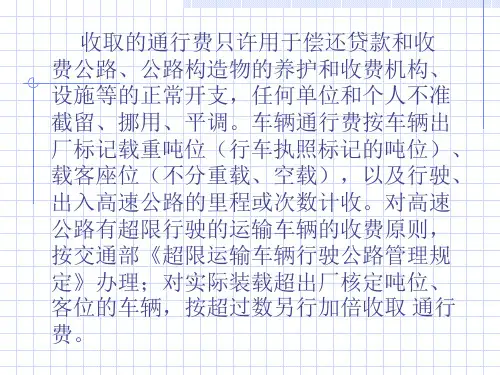 收取的通行费只许用于偿还贷款和收
费公路、公路构造物的养护和收费机构、
设施等的正常开支，任何单位和个人不准
截留、挪用、平调。车辆通行费按车辆出
厂标记载重吨位（行车执照标记的吨位）、
载客座位（不分重载、空载），以及行驶、
出入高速公路的里程或次数计收。对高速
公路有超限行驶的运输车辆的收费原则，
按交通部《超限运输车辆行驶公路管理规
定》办理；对实际装载超出厂核定吨位、
客位的车辆，按超过数另行加倍收取 通行
费。